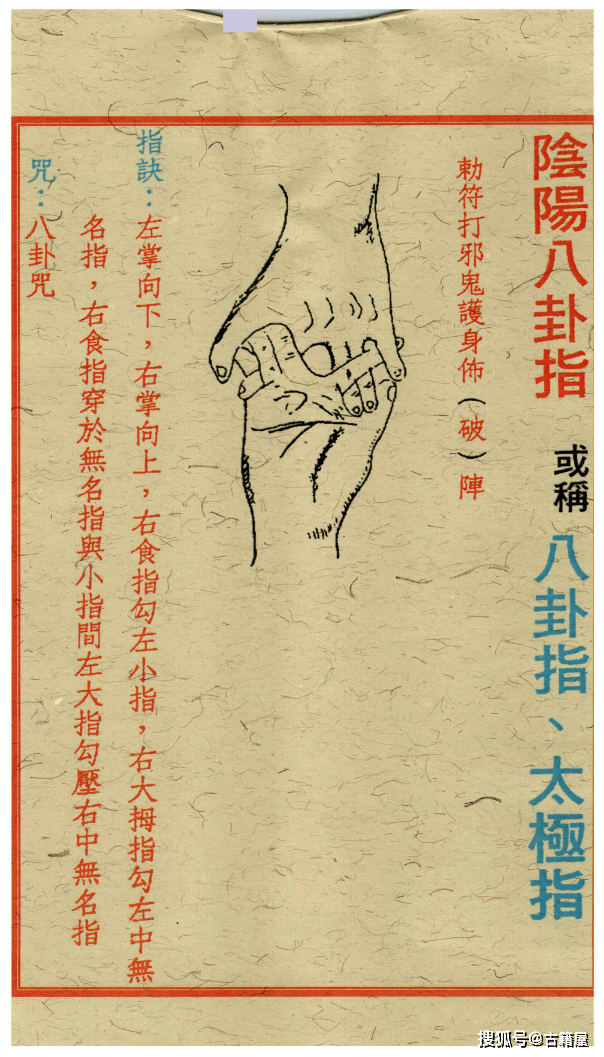 陰陽八卦指 或稱 八卦指、太極指
勅符打邪鬼護身佈（破）陣
指訣：左掌向下，右掌向上，右食指勾左小指，右大拇指勾左中無
名指，右食指穿於無名指與小指間左大指勾壓右中無名指
咒：八卦咒
搜狐号@古籍屋